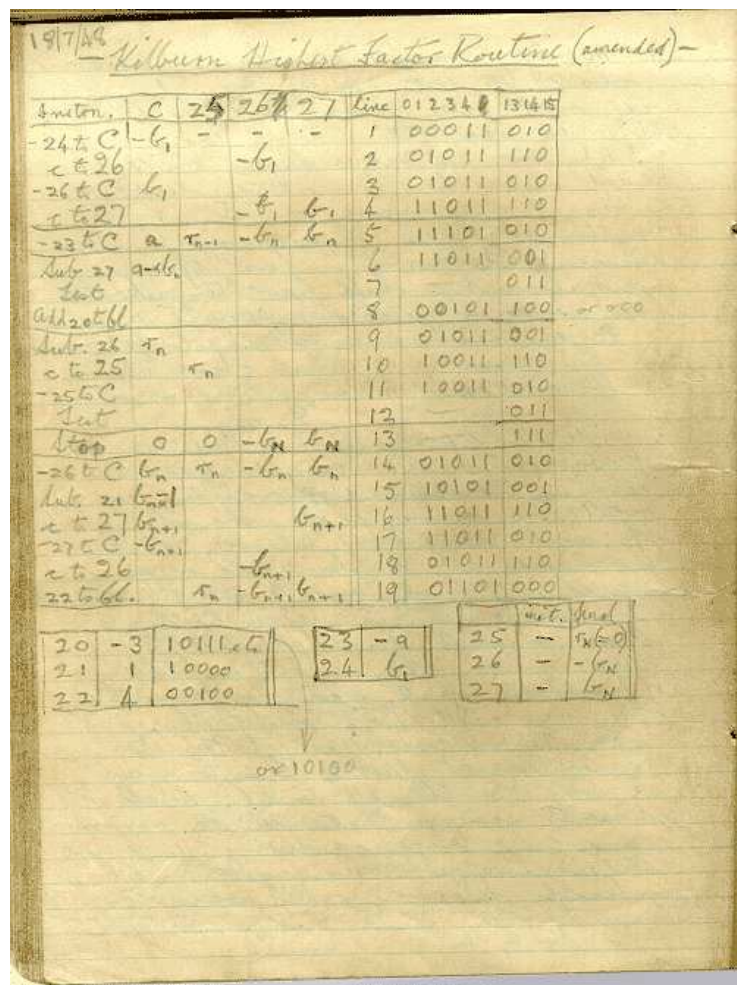 18/7/48
Kilburn Highest Factor Routine (amended) -
Instn. C 25 26 27 line 0 1 2 3 4 13 14 15
-24 to C -b1 - - - 1 00011 010
c to 26 -b1 2 01011 110
-26 to C b1 3 01011 010
c to 27 -b1 b1 4 11011 110
-23 to C a rn-1 -bn bn 5 11101 010
Sub. 27 a-bn 6 11011 001
Test 7 011
Add 20 to Cl 8 00101 100 or 000
Sub. 26 rn 9 01011 001
c to 25 rn 10 10011 110
-25 to C 11 10011 010
Test 12 011
Stop 0 0 -bN bN 13 111
-26 to C bn rn -bn bn 14 01011 010
Sub. 21 bn-1 15 10101 001
c to 27 bn+1 bn+1 16 11011 110
-27 to C -bn+1 17 11011 010
c to 26 -bn+1 18 01011 110
22 to Cl. rn -bn+1 bn+1 19 01101 000
init. final
20 -3 10111 etc 23 -a 25 - rN(=0)
21 1 10000 24 b1 26 - -bN
22 4 00100 27 - bN
or 10100